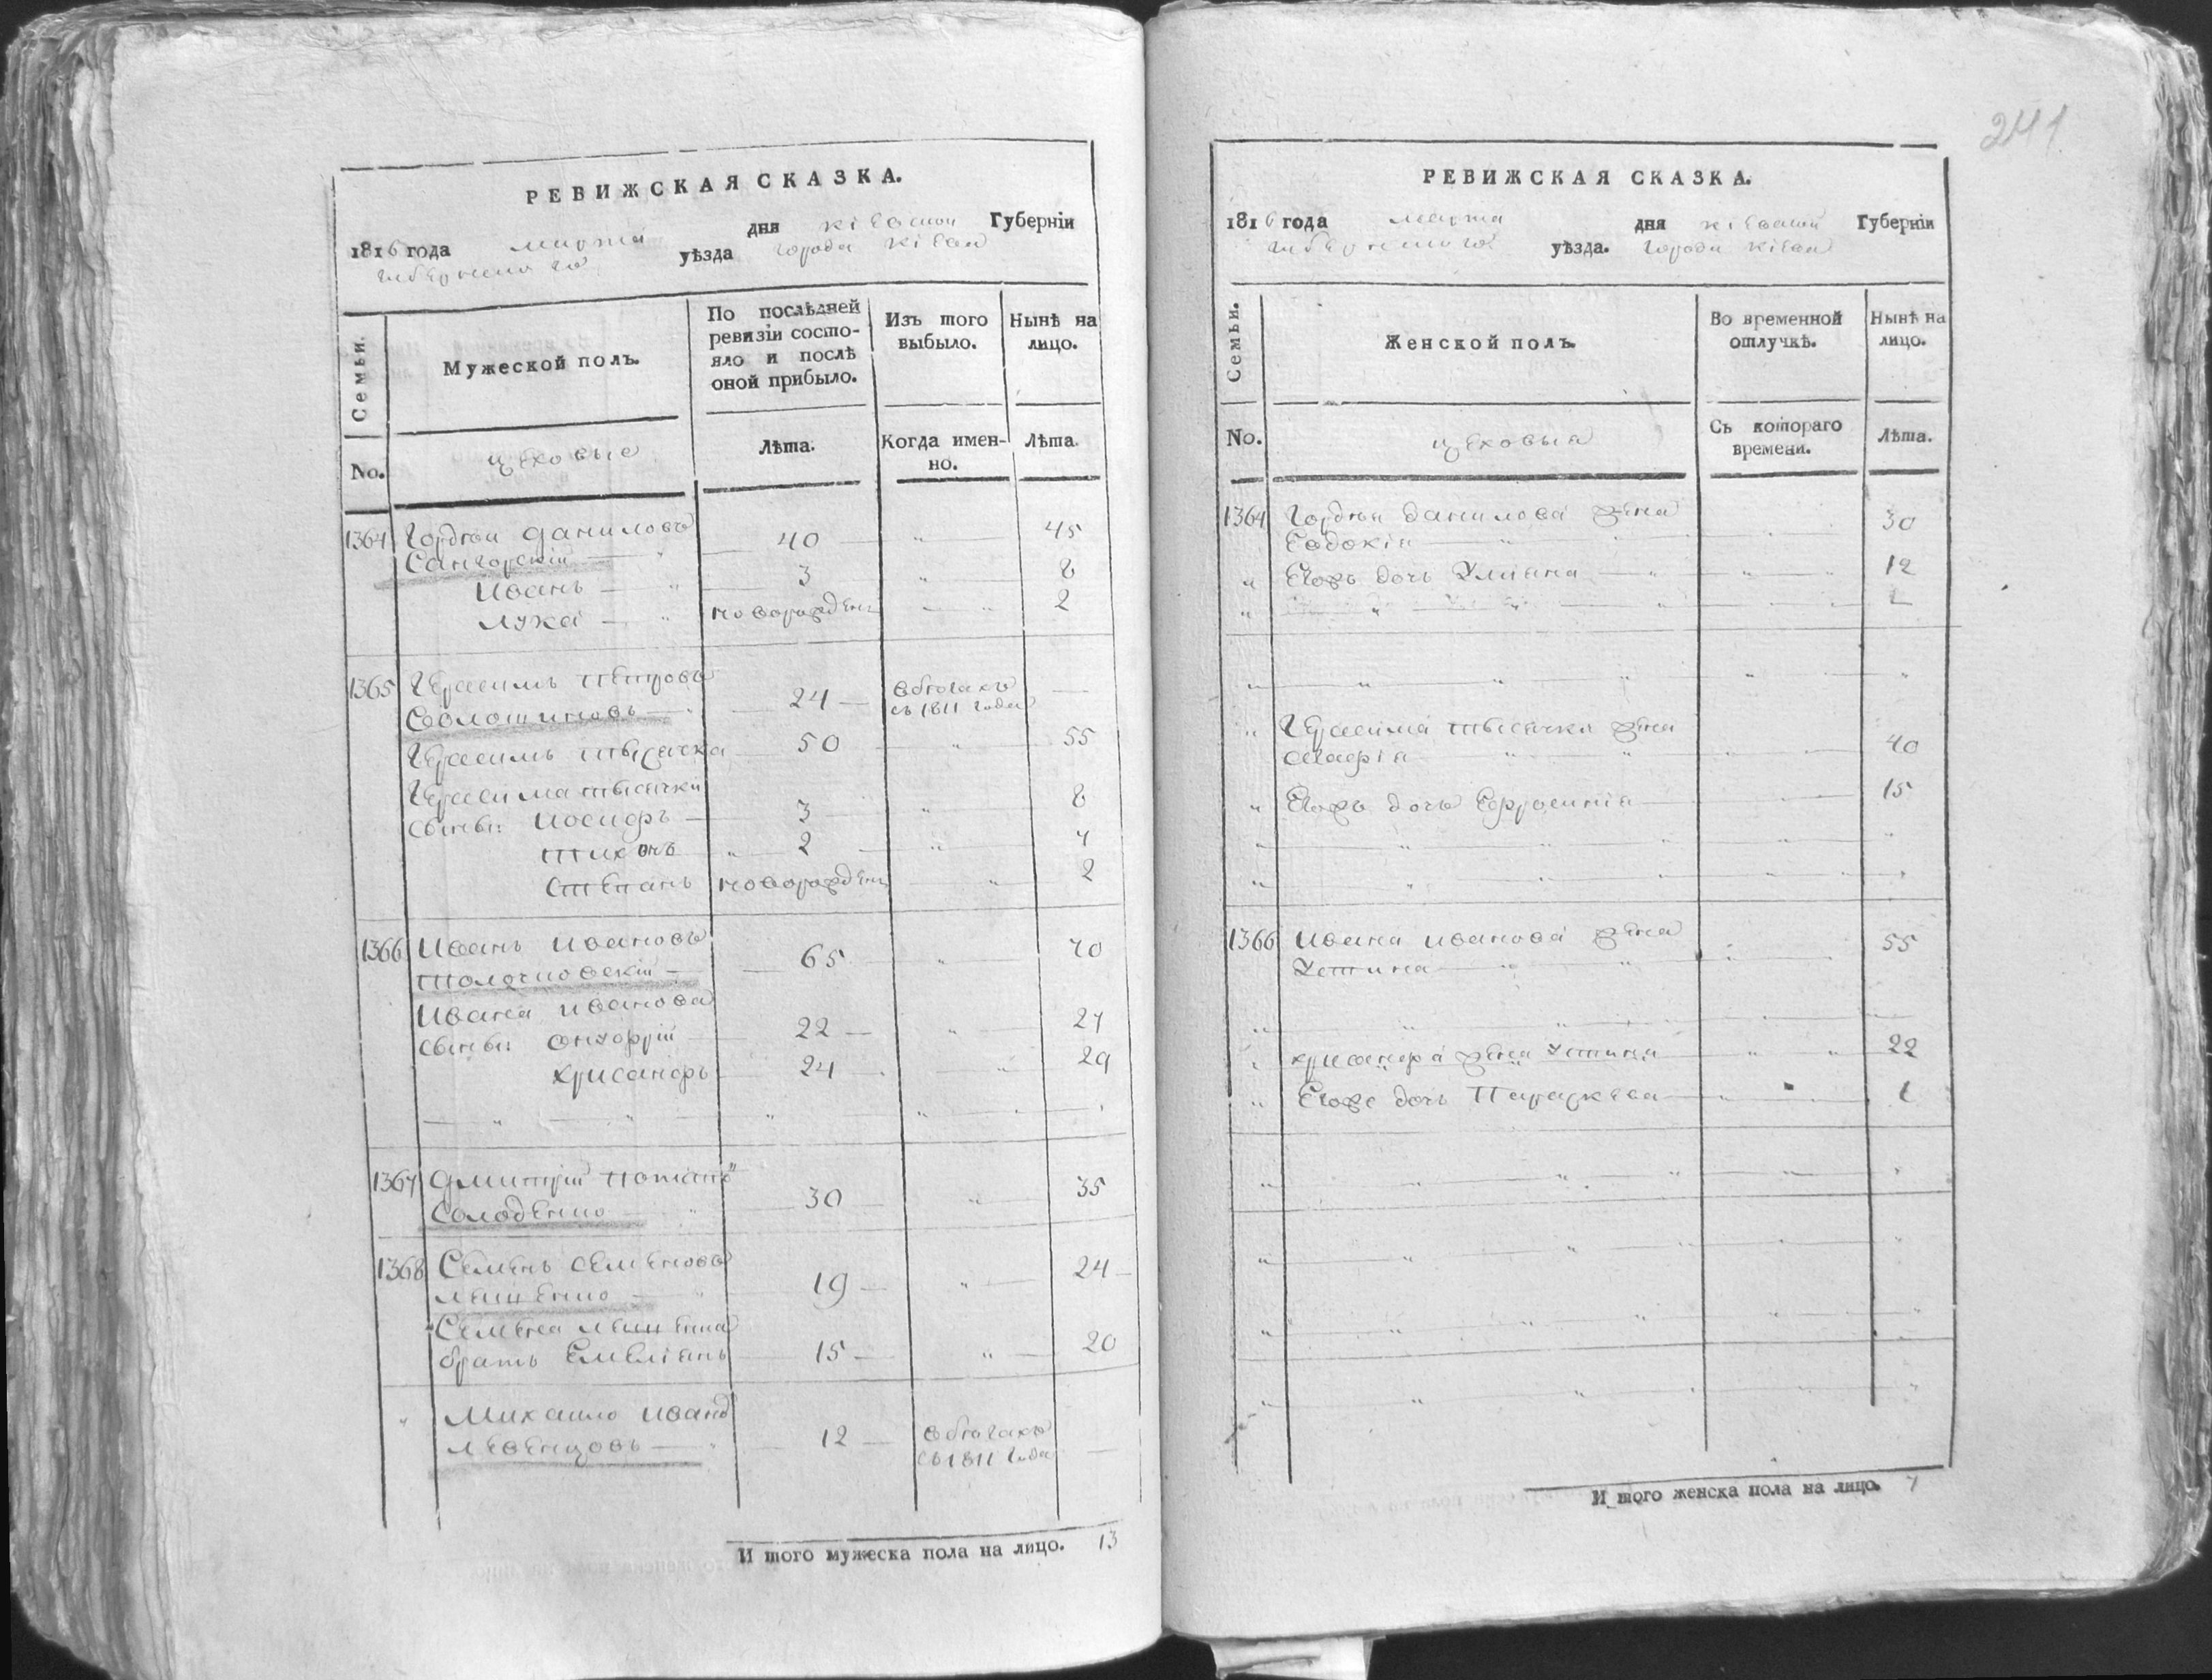 241
РЕВИЖСКАЯ СКАЗКА.
1816 года марта дня Кіевской Губерніи
уѣзда города Кіева
Семьи.
Мужеской полъ.
По послѣдней ревизіи состояло и послѣ оной прибыло.
Изъ того выбыло.
Нынѣ на лицо.
No.
цеховые
Лѣта.
Когда именно.
Лѣта.
1364 Гордѣй Даниловъ
40 45
Иванъ 3 8
Лука новорожден 2
1365 Герасимъ Петровъ
24 в бѣгахъ съ 1811 года
Герасимъ Тысячка 50 55
Герасима Тысячки
сыны: Иосифъ 3 8
Тихонъ 2 7
Степанъ новорожден 2
1366 Иванъ Ивановъ
65 70
Ивана Иванова
сыны: Онуфрій 22 27
Хрисанфъ 24 29
1367 Дмитрій
Солоденко 30 35
1368 Семенъ Семеновъ
19 24
Семена
братъ Емеліанъ 15 20
Михайло Иванъ
Левенцовъ 12 в бѣгахъ съ 1811 года
И того мужеска пола на лицо. 13
РЕВИЖСКАЯ СКАЗКА.
1816 года марта дня Кіевской Губерніи
уѣзда. города Кіева
Семьи.
Женской полъ.
Во временной отлучкѣ.
Нынѣ на лицо.
No.
цеховыя
Съ котораго времени.
Лѣта.
1364 Гордѣя Данилова жена
Евдокія 30
Егожъ дочь Улияна 12
Герасима Тысячки жена
40
Егожъ дочь Ефросинія 15
1366 Ивана Иванова жена
Устина 55
Хрисанфа жена Устина 22
Егоже дочь Параскева 1
И того женска пола на лицо. 7